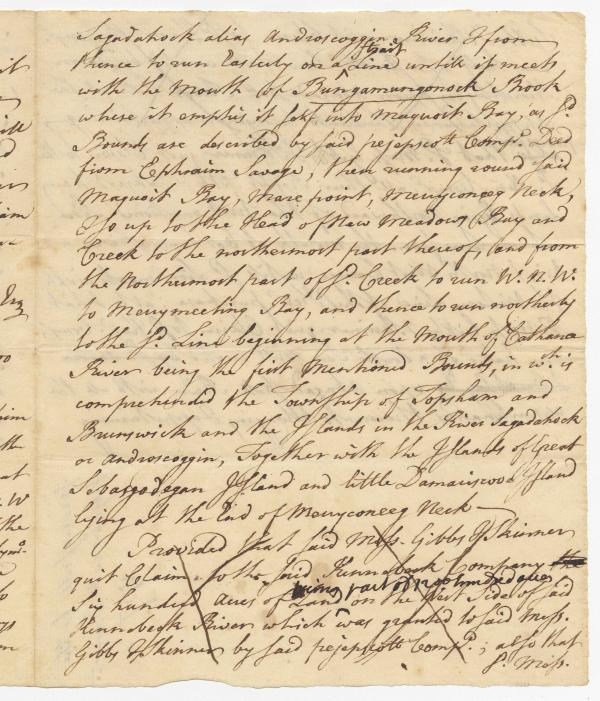 Sagadahock alias Androscoggin River & from
thence to run Easterly on a strait Line untill it meets
with the Mouth of Bungamungonock Brook
where it emptis it self into Maquoit Bay, as sd.
Bounds are described by said pejepscott Compy. Deed
from Ephraim Savage, then running round said
Maquoit Bay, mare point, Merryconeeg Neck,
& so up to the Head of New Meadows Bay and
Creek to the northermost part thereof, and from
the Northermost part of sd. Creek to run W. N. W.
to Merrymeeting Bay, and thence to run northerly
to the sd. Line beginning at the Mouth of Cathance
River being the first Mentioned Bounds, in wch. is
comprehended the Township of Topsham and
Brunswick and the Islands in the River Sagadahock
or Androscoggin, Together with the Islands of Great
Sebasgodegan Island and little Damariscove Island
lying at the End of Merryconeeg Neck
Provided that said Mess. Gibbs & Skinner
quit Claim to the said Kennebeck Company the
being part of 1200 hundred acres
Six hundred acres of Land on the West Side of said
Kennebeck River which was granted to said Mess.
Gibbs & Skinner by said pejepscott Compy.; also that
sd. Mess.